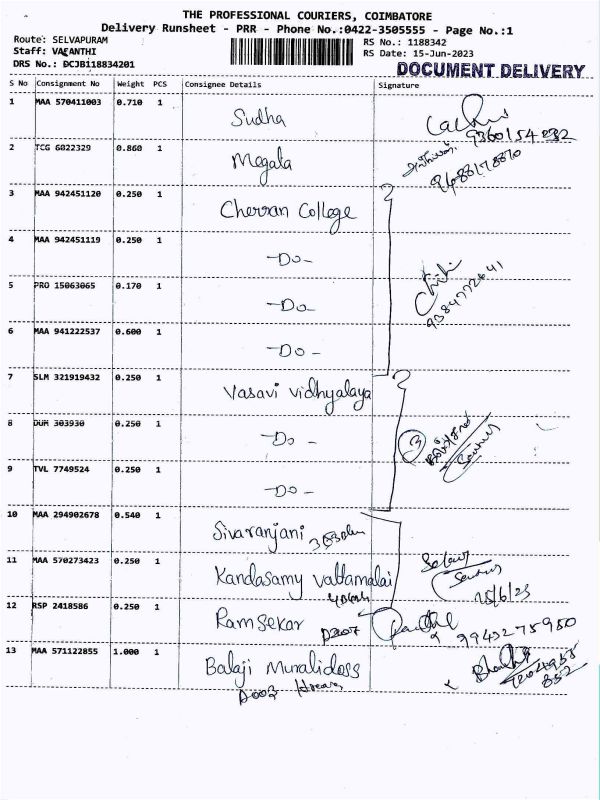 THE PROFESSIONAL COURIERS, COIMBATORE
Delivery Runsheet - PRR - Phone No.:0422-3505555 - Page No.:1
Route: SELVAPURAM
Staff: VASANTHI
DRS No.: DCJB118834201
RS No.: 1188342
RS Date: 15-Jun-2023
DOCUMENT DELIVERY
S No Consignment No Weight PCS Consignee Details Signature
1 MAA 570411003 0.710 1 Sudha
2 TCG 6022329 0.860 1 Megala
3 MAA 942451120 0.250 1 Cherran College
4 MAA 942451119 0.250 1 -Do-
5 PRO 15063065 0.170 1 -Do-
6 MAA 941222537 0.600 1 -Do-
7 SLM 321919432 0.250 1 Vasavi Vidhyalaya
8 DUM 303930 0.250 1 -Do- 3
9 TVL 7749524 0.250 1 -Do-
10 MAA 294902678 0.540 1 Sivaranjani
11 MAA 570273423 0.250 1 Kandasamy Vattamalai
15/6/23
12 RSP 2418586 0.250 1 Ramsekar D207 9943275950
13 MAA 571122855 1.000 1 Balaji Muralidoss
D003